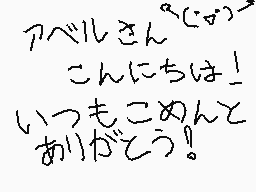 アベルさん
こんにちは!
いつもこめんと
ありがとう!